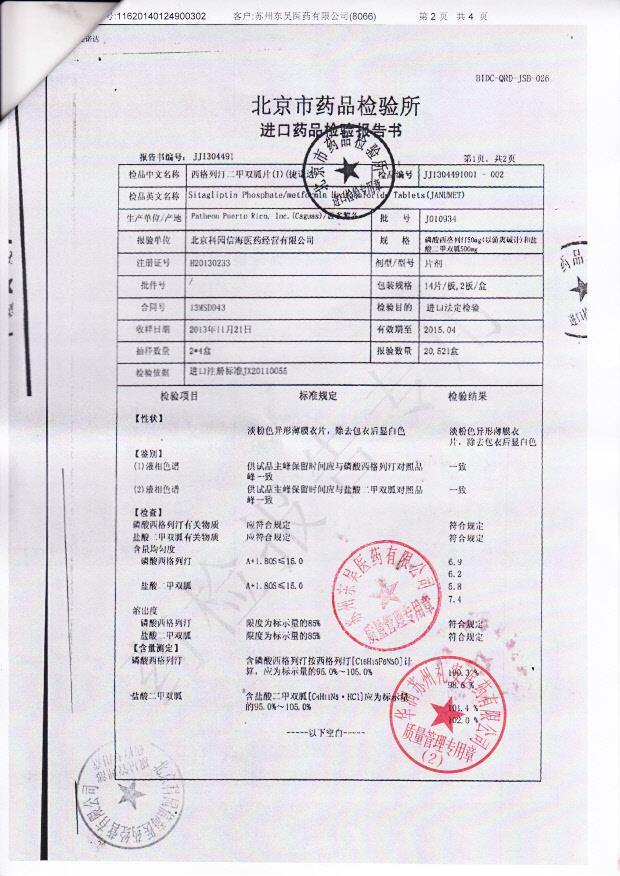 号:11620140124900302 客户:苏州东吴医药有限公司(8066) 第 2 页 共 4 页
BIDC-QRD-JSB-026
北京市药品检验所
进口药品检验报告书
报告书编号: JJ1304491 第1页, 共2页
检品中文名称 西格列汀二甲双胍片(I)(捷诺达) 检品编号 JJ1304491001 - 002
检品英文名称 Sitagliptin Phosphate/metformin Hydrochloride Tablets(JANUMET)
生产单位/产地 Patheon Puerto Rico, Inc.(Caguas)/波多黎各 批 号 J010934
报验单位 北京科园信海医药经营有限公司 规 格 磷酸西格列汀50mg(以游离碱计)和盐酸二甲双胍500mg
注册证号 H20130233 剂型/型号 片剂
批件号 / 包装规格 14片/板,2板/盒
合同号 13MSD043 检验目的 进口法定检验
收样日期 2013年11月21日 有效期至 2015.04
抽样数量 2*4盒 报验数量 20,521盒
检验依据 进口注册标准JX20110055
检验项目 标准规定 检验结果
【性状】
淡粉色异形薄膜衣片, 除去包衣后显白色 淡粉色异形薄膜衣
片, 除去包衣后显白色
【鉴别】
(1)液相色谱 供试品主峰保留时间应与磷酸西格列汀对照品 一致
峰一致
(2)液相色谱 供试品主峰保留时间应与盐酸二甲双胍对照品 一致
峰一致
【检查】
磷酸西格列汀有关物质 应符合规定 符合规定
盐酸二甲双胍有关物质 应符合规定 符合规定
含量均匀度
磷酸西格列汀 A+1.80S≤15.0 6.9
6.2
盐酸二甲双胍 A+1.80S≤15.0 5.8
7.4
溶出度
磷酸西格列汀 限度为标示量的85% 符合规定
盐酸二甲双胍 限度为标示量的85% 符合规定
【含量测定】
磷酸西格列汀 含磷酸西格列汀按西格列汀[C16H15F6N5O]计
算, 应为标示量的95.0%~105.0% 100.3 %
98.6 %
盐酸二甲双胍 含盐酸二甲双胍[C4H11N5·HCl]应为标示量 101.4 %
的95.0%~105.0% 102.0 %
-----以下空白-----
北京市药品检验所
进口检验专用章
苏州东吴医药有限公司
质量管理专用章
华润苏州礼安医药有限公司
质量管理专用章
(2)